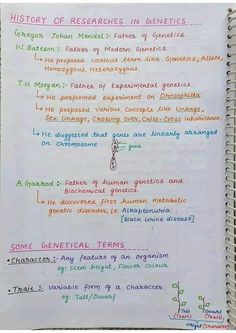 HISTORY OF RESEARCHES IN GENETICS
Gregor Johan Mendel :- Father of Genetics.
W. Bateson :- Father of Modern Genetics.
↳ He proposed various term like Genetics, Allele,
Homozygous, Heterozygous.
T.H. Morgan :- Father of Experimental genetics.
↳ He performed experiment on Drosophilla
↳ He proposed various Concepts like Linkage,
Sex Linkage, Crossing over, Criss-Cross Inheritance.
↳ He suggested that genes are linearly arranged
on chromosome
gene
A. Garrod :- Father of human genetics and
Biochemical genetics.
↳ He discovered first human metabolic
genetic disorder, i.e. Alkaptonuria
[Black urine disease]
SOME GENETICAL TERMS
• Character :- Any feature of an organism.
eg: Stem height, Flower colour
• Trait :- Variable form of a character.
eg: Tall/Dwarf
Tall Dwarf
(Trait) (Trait)
Height (character)